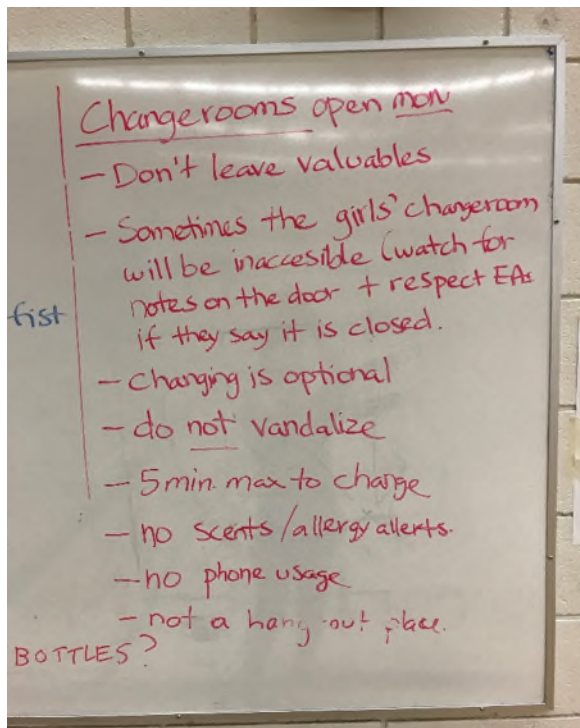 Changerooms open mon
- Don't leave valuables
- Sometimes the girls' changeroom
will be inaccesible (watch for
notes on the door + respect EAs
if they say it is closed.
fist
- Changing is optional
- do not vandalize
- 5 min. max to change
- no scents/allergy allerts.
- no phone usage
- not a hang out place.
BOTTLES?